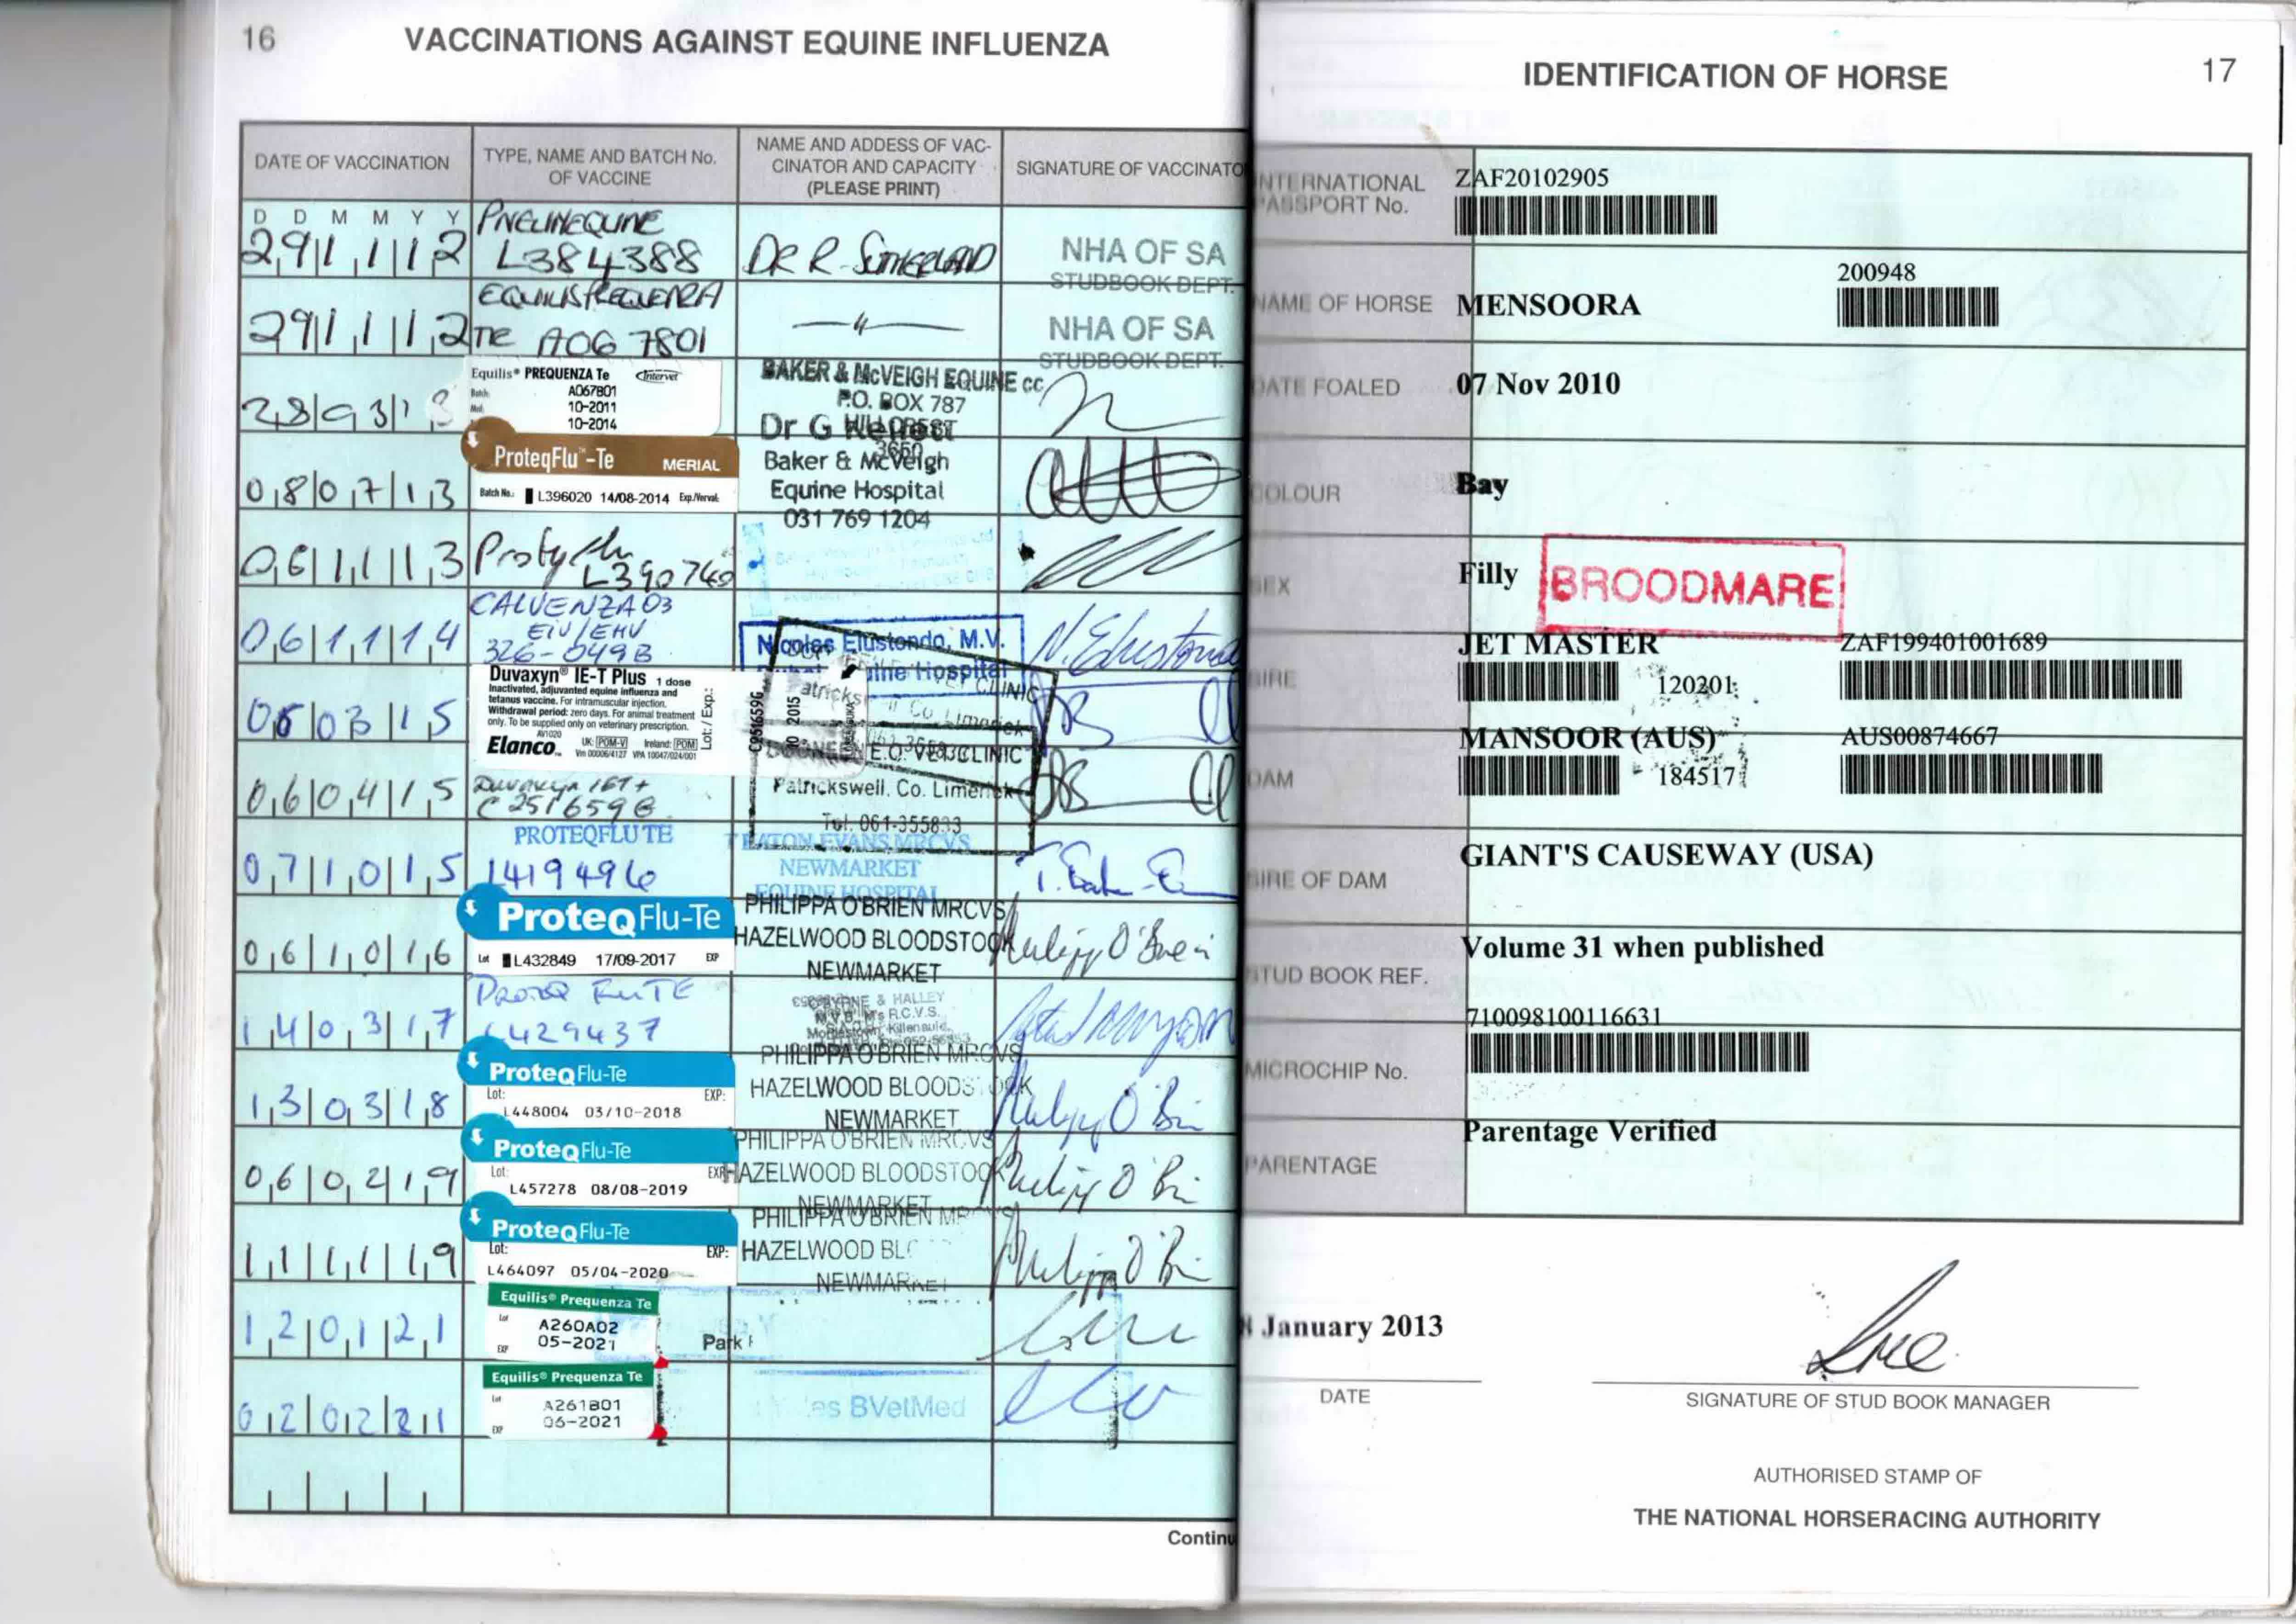 16
VACCINATIONS AGAINST EQUINE INFLUENZA
DATE OF VACCINATION
TYPE, NAME AND BATCH No. OF VACCINE
NAME AND ADDESS OF VAC-
CINATOR AND CAPACITY
(PLEASE PRINT)
SIGNATURE OF VACCINATO
D D M M Y Y
29 11 12
L384388
DR R
NHA OF SA
STUDBOOK DEPT.
29 11 12
TE A067801
NHA OF SA
STUDBOOK DEPT.
Equilis® PREQUENZA Te Intervet
Batch A067B01
10-2011
10-2014
BAKER & McVEIGH EQUINE cc
P.O. BOX 787
HILLCREST
3650
08 07 13
ProteqFlu™-Te MERIAL
Batch No.: L396020 14/08-2014 Exp./Verval:
Dr G
Baker & McVeigh
Equine Hospital
031 769 1204
06 11 13
L390740
06 11 14
CALVENZA 03
EIV/EHV
326-049B
Nicolas Elustondo, M.V.
Equine Hospital
N. Elustondo
05 03 15
Duvaxyn® IE-T Plus 1 dose
Inactivated, adjuvanted equine influenza and
tetanus vaccine. For intramuscular injection.
Withdrawal period: zero days. For animal treatment
only. To be supplied only on veterinary prescription.
AV1020 UK: POM-V Ireland: POM
Elanco Vm 00006/4127 VPA 10047/024/001
Lot / Exp.:
C251659G
10 2015
06 04 15
VET CLINIC
Patrickswell, Co. Limerick
Tel. 061-355833
07 10 15
PROTEQFLU TE
1419496
NEWMARKET
EQUINE HOSPITAL
06 10 16
ProteqFlu-Te
Lot L432849 17/09-2017 EXP
PHILIPPA O'BRIEN MRCVS
HAZELWOOD BLOODSTOCK
NEWMARKET
Philippa O'Brien
14 03 17
PROTEQ FLU TE
L429437
& HALLEY
M.V.B., M's R.C.V.S.
13 03 18
ProteqFlu-Te
Lot: EXP:
L448004 03/10-2018
PHILIPPA O'BRIEN MRCVS
HAZELWOOD BLOODSTOCK
NEWMARKET
06 02 19
ProteqFlu-Te
Lot: EXP:
L457278 08/08-2019
PHILIPPA O'BRIEN MRCVS
HAZELWOOD BLOODSTOCK
NEWMARKET
11 11 19
ProteqFlu-Te
Lot: EXP:
L464097 05/04-2020
PHILIPPA O'BRIEN MRCVS
HAZELWOOD BL
NEWMARKET
12 01 21
Equilis® Prequenza Te
Lot A260A02
EXP 05-2021
Park
02 02 21
Equilis® Prequenza Te
Lot A261B01
EXP 06-2021
es BVetMed
Continu
IDENTIFICATION OF HORSE
17
INTERNATIONAL PASSPORT No.
ZAF20102905
NAME OF HORSE
MENSOORA
200948
DATE FOALED
07 Nov 2010
COLOUR
Bay
SEX
Filly
BROODMARE
SIRE
JET MASTER
120201
ZAF199401001689
DAM
MANSOOR (AUS)
184517
AUS00874667
SIRE OF DAM
GIANT'S CAUSEWAY (USA)
STUD BOOK REF.
Volume 31 when published
MICROCHIP No.
710098100116631
PARENTAGE
Parentage Verified
8 January 2013
DATE
SIGNATURE OF STUD BOOK MANAGER
AUTHORISED STAMP OF
THE NATIONAL HORSERACING AUTHORITY